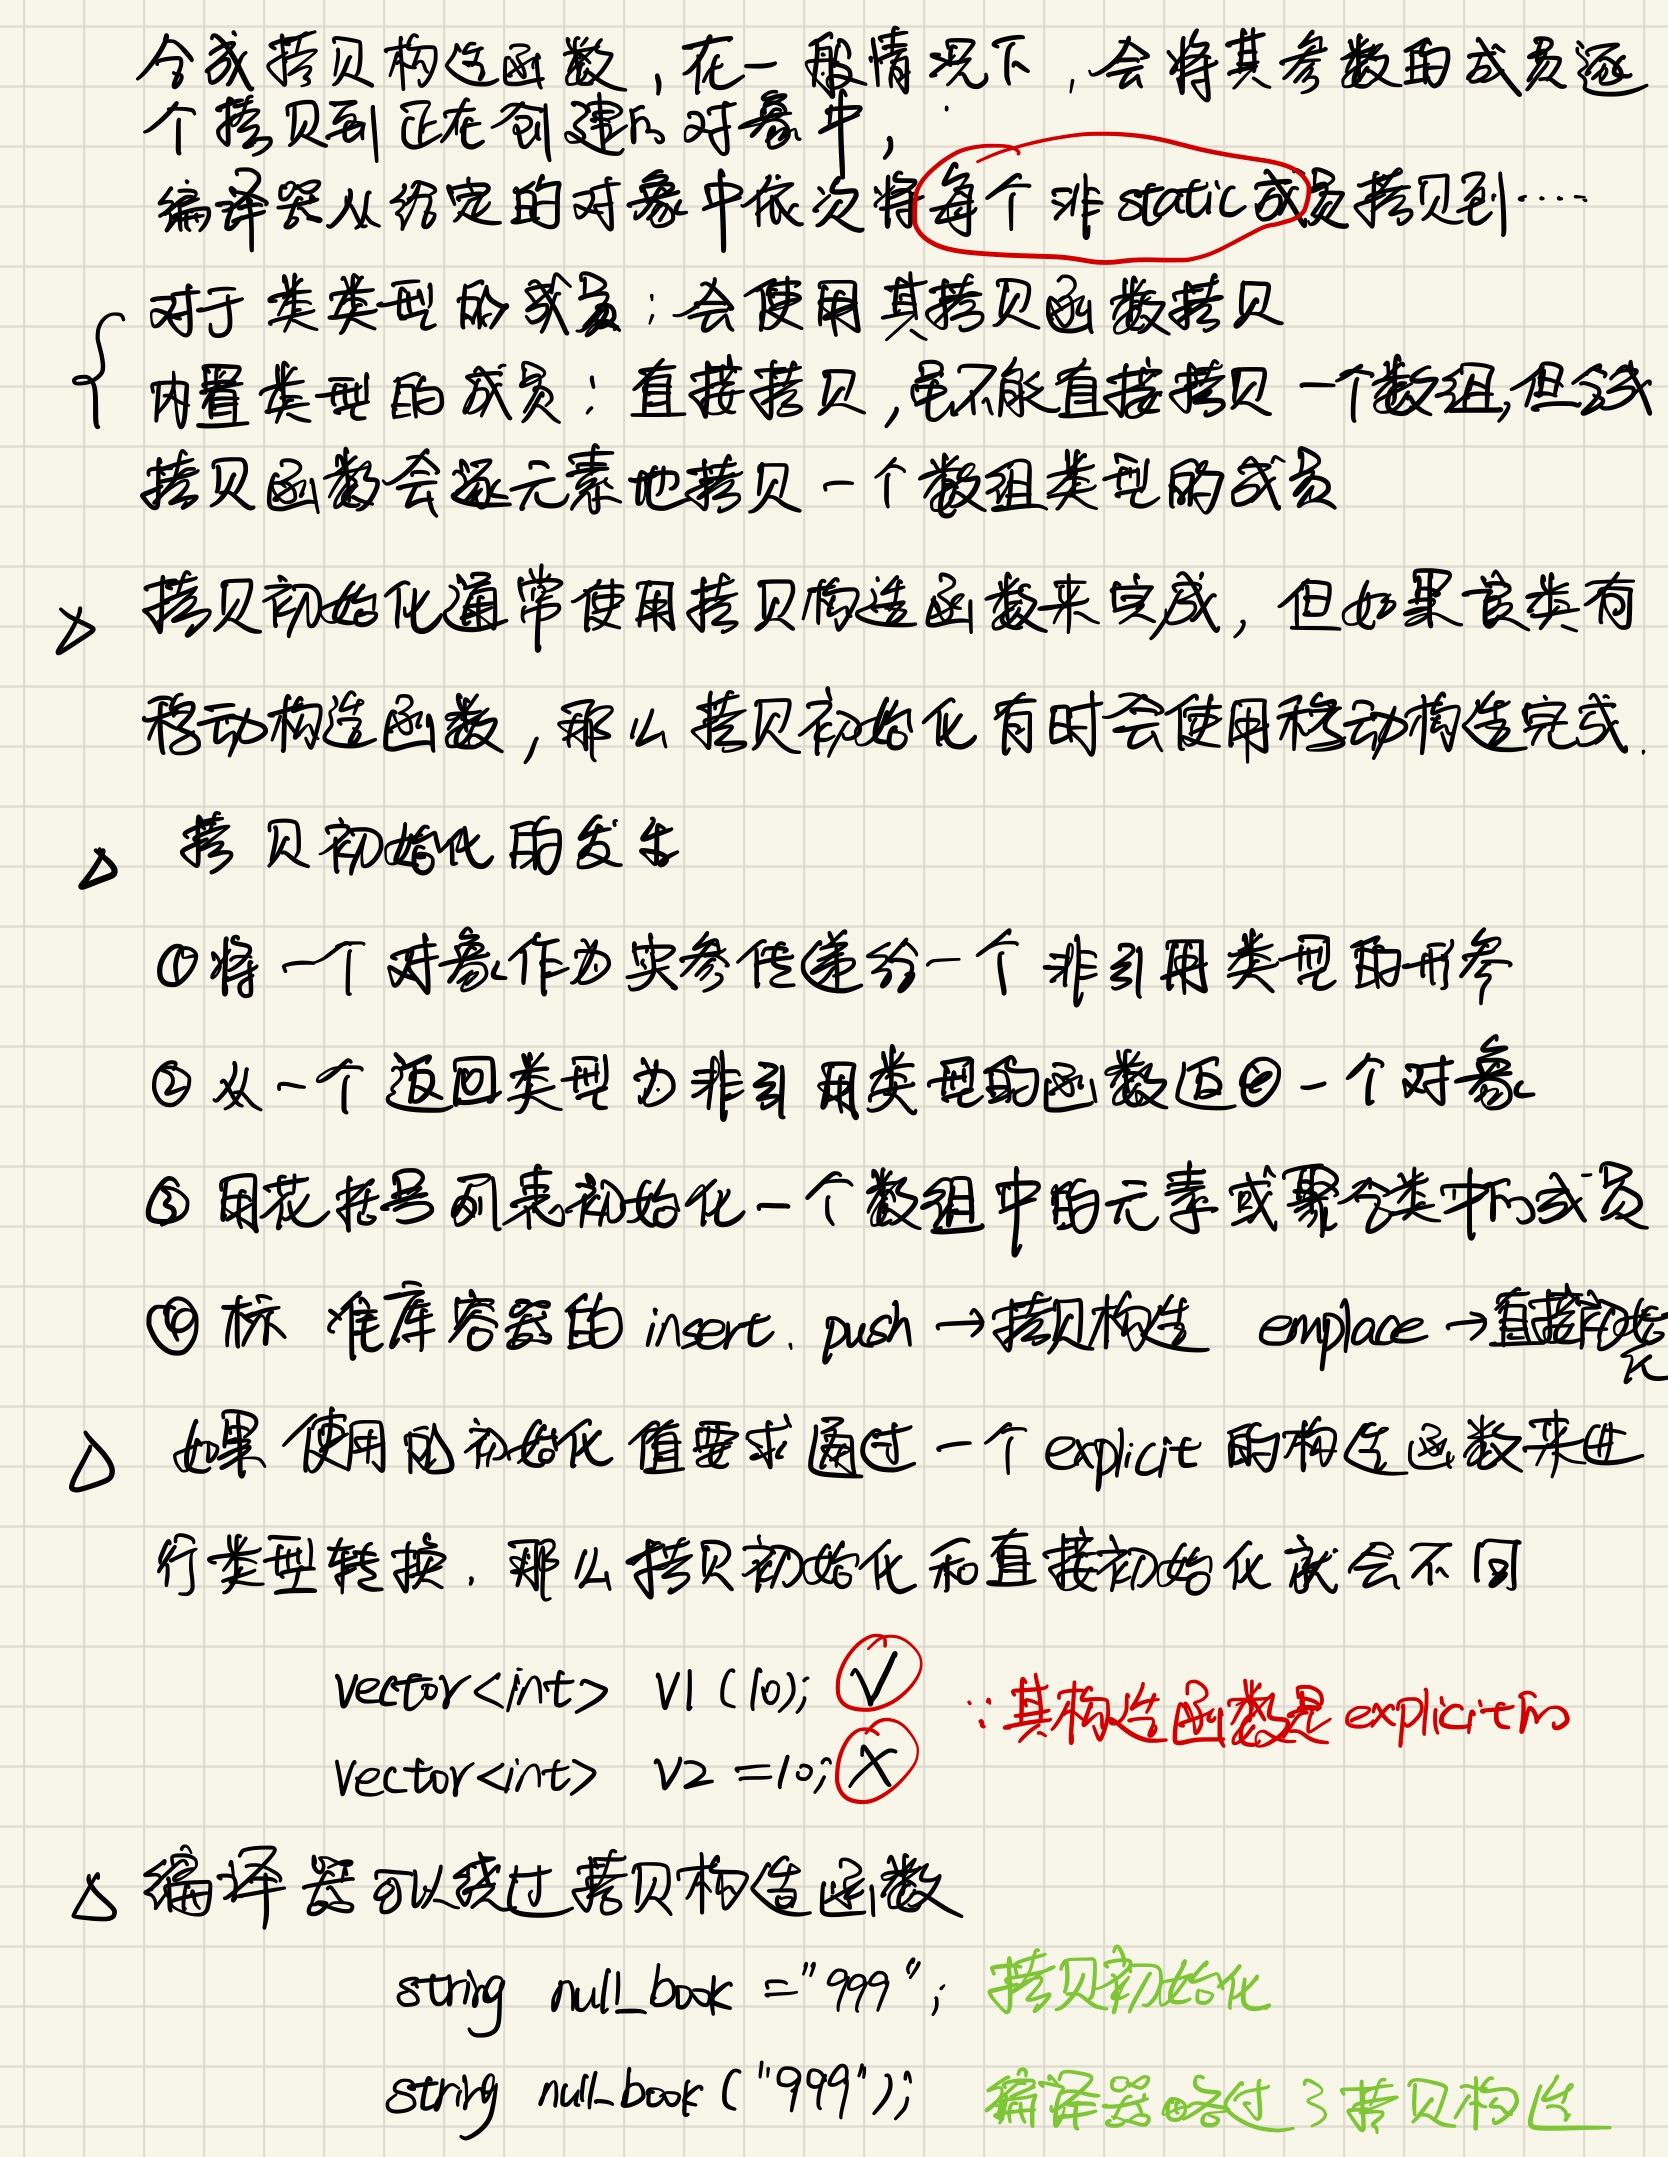 合成拷贝构造函数,在一般情况下,会将其参数的成员逐
个拷贝到正在创建的对象中,
编译器从给定的对象中依次将每个非static成员拷贝到……
对于类类型的成员:会使用其拷贝函数拷贝
内置类型的成员:直接拷贝,虽不能直接拷贝一个数组,但合成
拷贝函数会逐元素地拷贝一个数组类型的成员
拷贝初始化通常使用拷贝构造函数来完成,但如果该类有
移动构造函数,那么拷贝初始化有时会使用移动构造完成.
△ 拷贝初始化的发生
①将一个对象作为实参传递给一个非引用类型的形参
②从一个返回类型为非引用类型的函数返回一个对象
③用花括号列表初始化一个数组中的元素或聚合类中的成员
④标准库容器的insert. push→拷贝构造 emplace→直接初始化
△ 如果使用的初始化值要求通过一个explicit的构造函数来进
行类型转换.那么拷贝初始化和直接初始化就会不同
vector<int> v1(10); √
∵其构造函数是explicit的
vector<int> v2 =10; ×
△ 编译器可以绕过拷贝构造函数
string null_book ="999"; 拷贝初始化
string null_book("999"); 编译器略过了拷贝构造